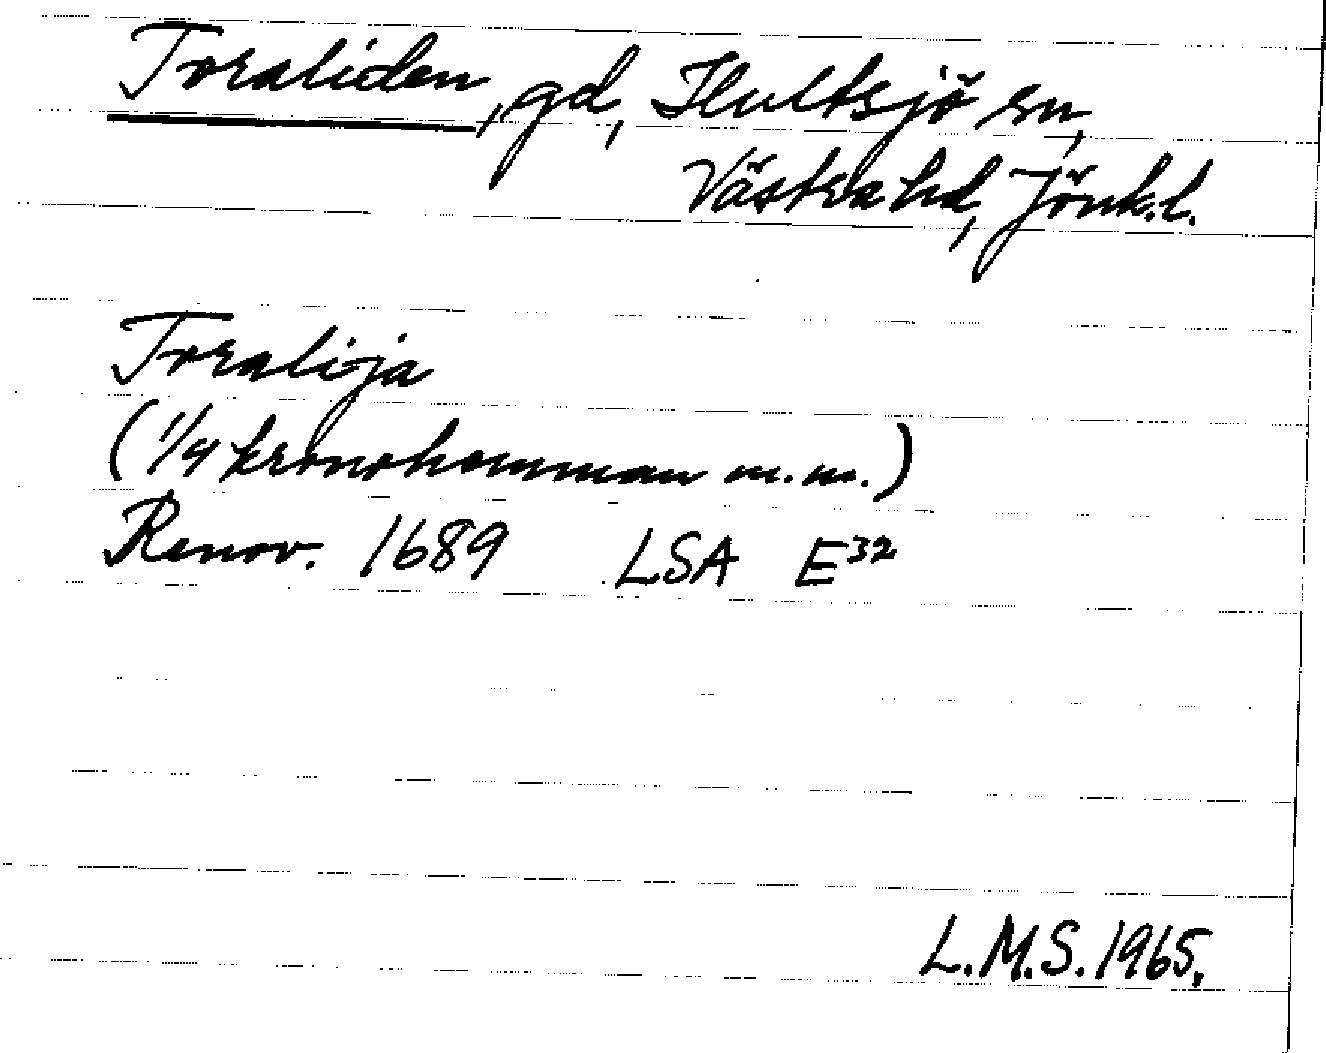 Toraliden, gd, Hultsjö sn,
Västra hd, Jönk.l.
Toralija
(1/4 kronohemman m.m.)
Renov. 1689 LSA E32
L.M.S. 1965.